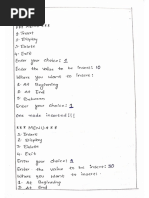 *** MENU ***
1. Insert
2. Display
3. Delete
4. Exit
Enter your choice: 1
Enter the value to be insert: 10
Where you want to insert:
1. At Beginning
2. At End
3. Between
Enter your choice: 1
One node inserted!!!
*** MENU ***
1. Insert
2. Display
3. Delete
4. Exit
Enter your choice: 1
Enter the value to be insert: 30
Where you want to insert:
1. At Beginning
2. At End